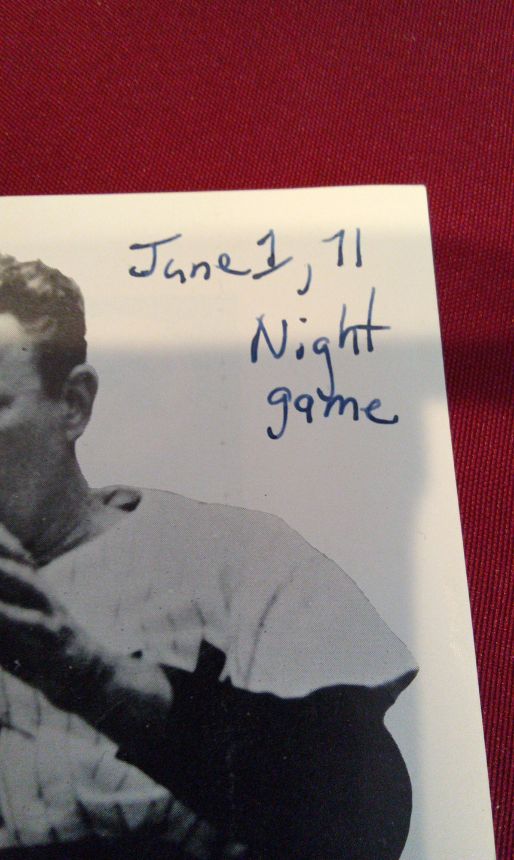 June 1, 71
Night
game